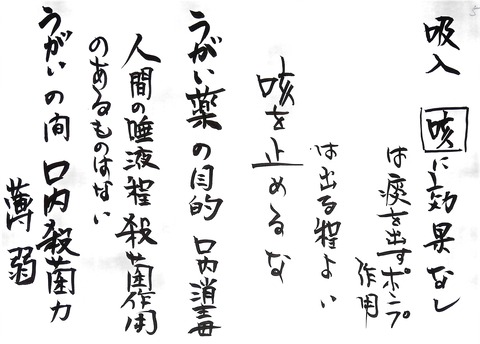 吸入 咳に効果なし
は痰を出すポンプ
作用
は出る程よい
咳を止めるな
うがい薬の目的 口内消毒
人間の唾液程殺菌作用
のあるものはない
うがいの間 口内殺菌力
薄弱